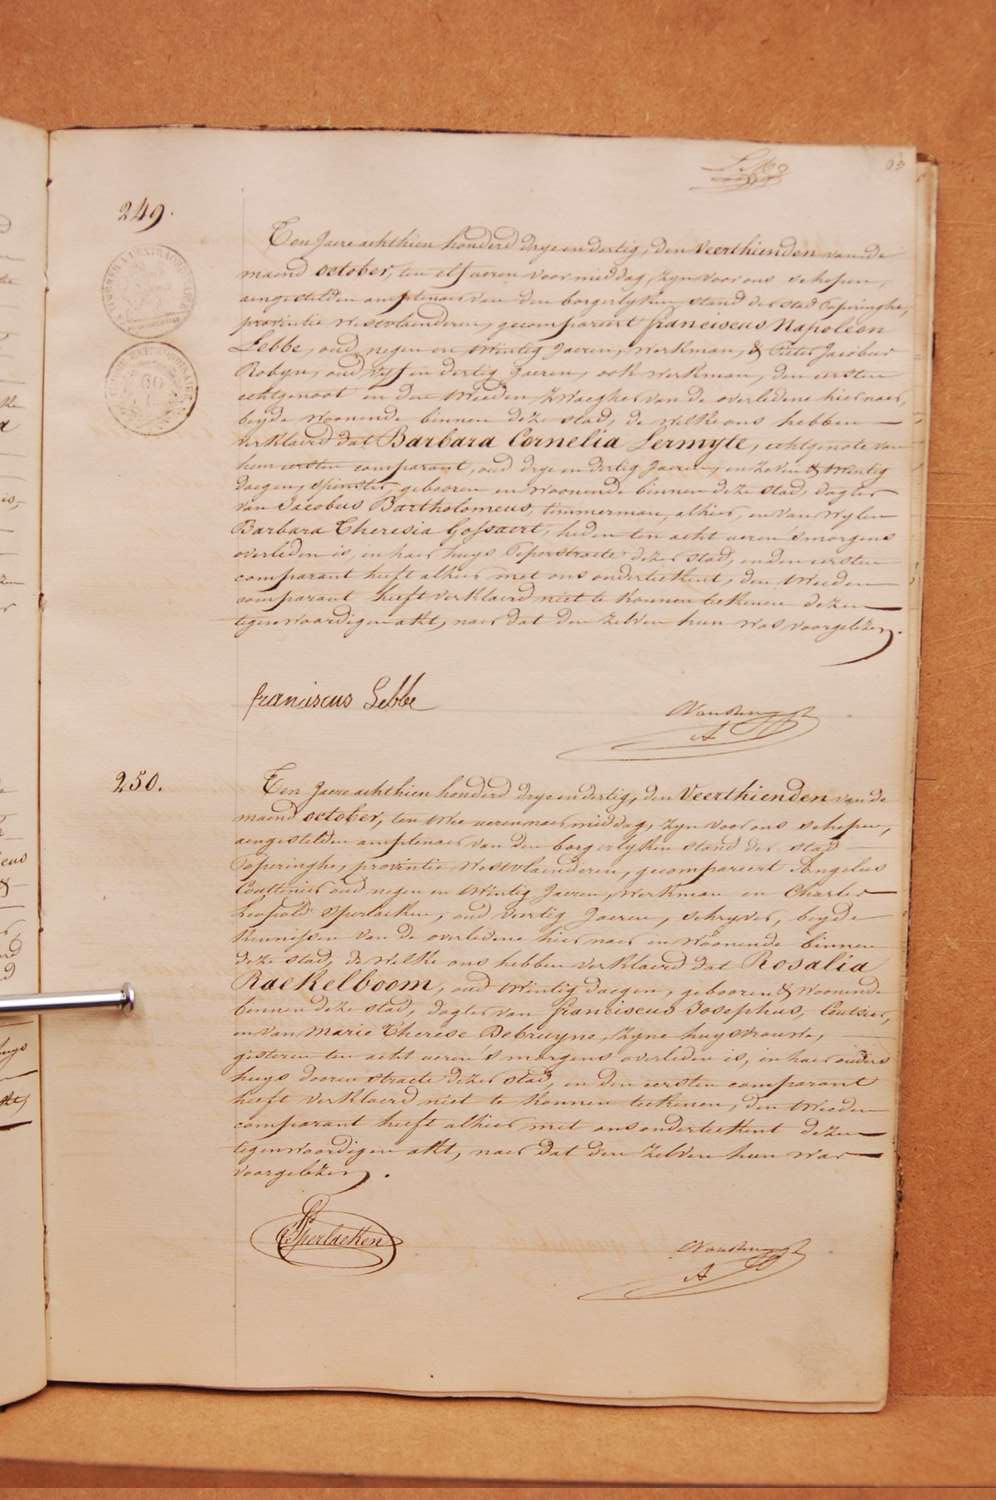 93
249.
Ten Jaere achthien honderd drye en dertig, den Veerthienden van de
maend october, ten elf ueren voor middag, zyn voor ons schepen,
aengestelden amptenaer van den borgerlyken stand der stad Poperinghe,
provintie Westvlaenderen, gecompareert franciscus Napoleon
Lebbe, oud negen en twintig Jaeren, werkman, & Pieter Jacobus
Robyn, oud vyf en dertig Jaeren, ook werkman, den eersten
echtgenoot en den tweeden zwaeger van de overledene hier naer,
beyde woonende binnen deze stad, de welke ons hebben
verklaerd dat Barbara Cornelia Lermyte, echtgenote van
hun eersten comparant, oud drye en dertig Jaeren, en zeven & twintig
daegen, spinster, gebooren en woonende binnen deze stad, dogter
van Jacobus Bartholomeus, timmerman, alhier, en van wylen
Barbara Theresia Gossaert, heden ten acht ueren 's morgens
overleden is, in haer huys Peperstraete dezer stad, en den eersten
comparant heeft alhier met ons onderteekent, den tweeden
comparant heeft verklaerd niet te konnen teekenen dezen
tegenwoordigen akt, naer dat den zelven hun was voorgelezen.
franciscus Lebbe
250.
Ten Jaere achthien honderd drye en dertig, den Veerthienden van de
maend october, ten twee ueren naer middag, zyn voor ons schepen,
aengestelden amptenaer van den borgerlyken stand der stad
Poperinghe, provintie Westvlaenderen, gecompareert Angelus
Couttenier oud negen en twintig Jaeren, werkman en Charles
Leopold Sperlaeken, oud veertig Jaeren, schryver, beyde
kennissen van de overledene hier naer en woonende binnen
deze stad, de welke ons hebben verklaerd dat Rosalia
Raekelboom, oud twintig daegen, gebooren & woonende
binnen deze stad, dogter van franciscus Josephus, Coutsier,
en van Marie Therese Debruyne, zyne huysvrouwe,
gisteren ten acht ueren 's morgens overleden is, in haer ouders
huys dooren straete dezer stad, en den eersten comparant
heeft verklaerd niet te konnen teekenen, den tweeden
comparant heeft alhier met ons onderteekent dezen
tegenwoordigen akt, naer dat den zelven hun was
voorgelezen.
Sperlaeken